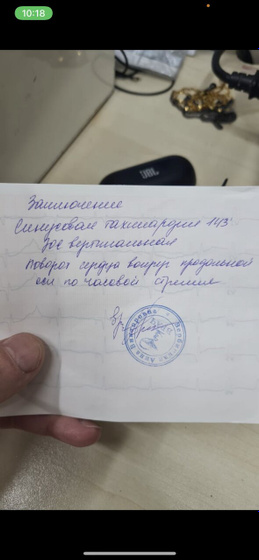 10:18
JBL
Заключение
Синусовая тахикардия 143'
ЭОС вертикальная
Поворот сердца вокруг продольной
оси по часовой стрелке
Вр